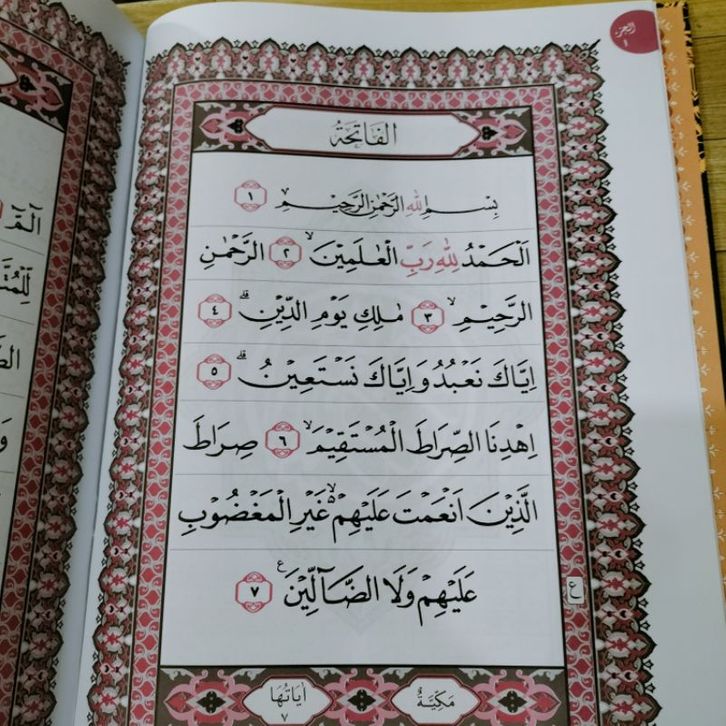 الجزء
١
الفاتحة
بِسْمِ اللهِ الرَّحْمٰنِ الرَّحِيْمِ ١
اَلْحَمْدُ لِلّٰهِ رَبِّ الْعٰلَمِيْنَ ۙ ٢ الرَّحْمٰنِ
الرَّحِيْمِ ۙ ٣ مٰلِكِ يَوْمِ الدِّيْنِ ۗ ٤
اِيَّاكَ نَعْبُدُ وَاِيَّاكَ نَسْتَعِيْنُ ۗ ٥
اِهْدِنَا الصِّرَاطَ الْمُسْتَقِيْمَ ۙ ٦ صِرَاطَ
الَّذِيْنَ اَنْعَمْتَ عَلَيْهِمْ ۙ۬ غَيْرِ الْمَغْضُوْبِ
عَلَيْهِمْ وَلَا الضَّاۤلِّيْنَ ࣖ ٧
ع
مَكِيَّةٌ
اٰيَاتُهَا
٧
الٓمّٓ